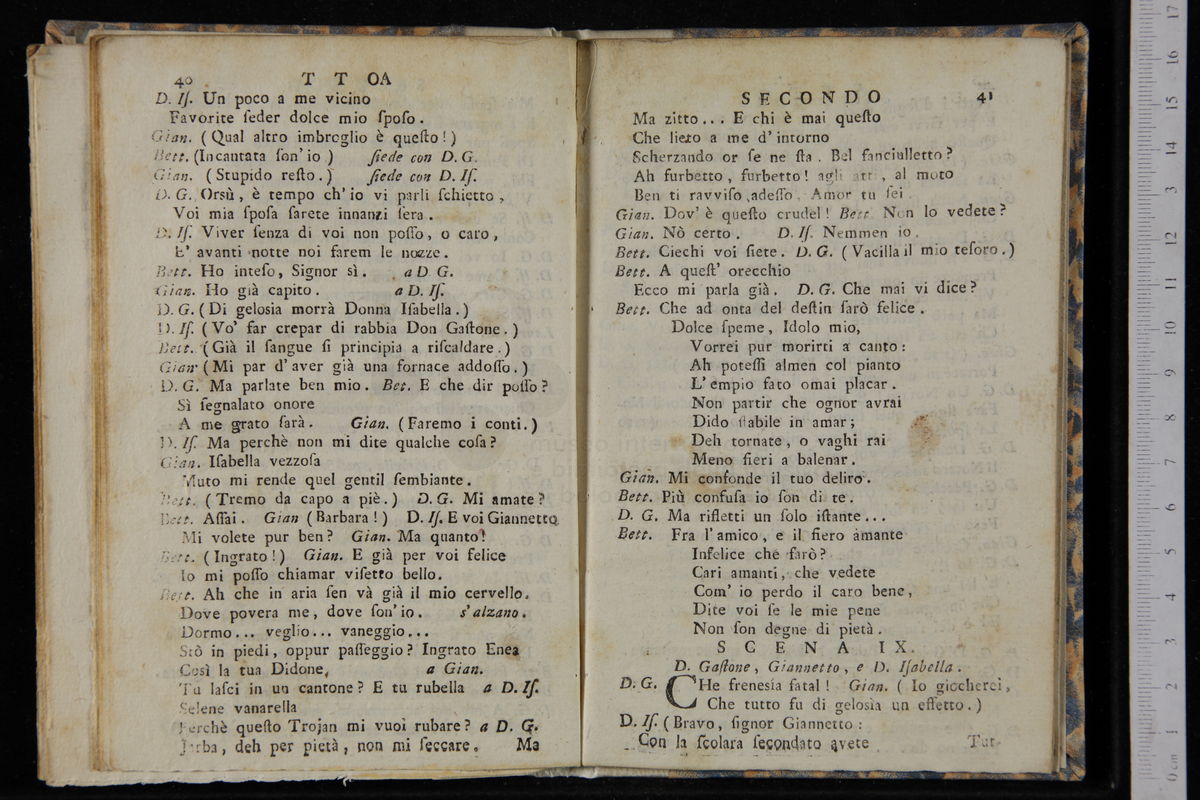 40 T T OA
D. Iſ. Un poco a me vicino
Favorite ſeder dolce mio ſpoſo.
Gian. (Qual altro imbroglio è queſto!)
Bett. (Incantata ſon' io) ſiede con D. G.
Gian. (Stupido reſto.) ſiede con D. Iſ.
D. G. Orsù, è tempo ch' io vi parli ſchietto,
Voi mia ſpoſa ſarete innanzi ſera.
D. Iſ. Viver ſenza di voi non poſſo, o caro,
E' avanti notte noi farem le nozze.
Bett. Ho inteſo, Signor sì. a D G.
Gian. Ho già capito. a D. Iſ.
D. G. (Di geloſia morrà Donna Iſabella.)
D. Iſ. (Vo' far crepar di rabbia Don Gaſtone.)
Bett. (Già il ſangue ſi principia a riſcaldare.)
Gian (Mi par d'aver già una fornace addoſſo.)
D. G. Ma parlate ben mio. Bet. E che dir poſſo?
Sì ſegnalato onore
A me grato ſarà. Gian. (Faremo i conti.)
D. Iſ. Ma perchè non mi dite qualche coſa?
Gian. Iſabella vezzoſa
Muto mi rende quel gentil ſembiante.
Bett. (Tremo da capo a piè.) D. G. Mi amate?
Bett. Aſſai. Gian (Barbara!) D. Iſ. E voi Giannetto
Mi volete pur ben? Gian. Ma quanto!
Bett. (Ingrato!) Gian. E già per voi felice
Io mi poſſo chiamar viſetto bello.
Bett. Ah che in aria ſen và già il mio cervello.
Dove povera me, dove ſon' io. s' alzano.
Dormo... veglio... vaneggio...
Stò in piedi, oppur paſſeggio? Ingrato Enea
Così la tua Didone, a Gian.
Tu laſci in un cantone? E tu rubella a D. Iſ.
Selene vanarella
Perchè queſto Trojan mi vuoi rubare? a D. G.
Jarba, deh per pietà, non mi ſeccare. Ma
SECONDO 41
Ma zitto... E chi è mai queſto
Che lieto a me d' intorno
Scherzando or ſe ne ſta. Bel fanciulletto?
Ah furbetto, furbetto! agli atti, al moto
Ben ti ravviſo adeſſo. Amor tu ſei.
Gian. Dov' è queſto crudel! Bett. Non lo vedete?
Gian. Nò certo. D. Iſ. Nemmen io.
Bett. Ciechi voi ſiete. D. G. (Vacilla il mio teſoro.)
Bett. A queſt' orecchio
Ecco mi parla già. D. G. Che mai vi dice?
Bett. Che ad onta del deſtin ſarò felice.
Dolce ſpeme, Idolo mio,
Vorrei pur morirti a canto:
Ah poteſſi almen col pianto
L' empio fato omai placar.
Non partir che ognor avrai
Dido ſtabile in amar;
Deh tornate, o vaghi rai
Meno fieri a balenar.
Gian. Mi confonde il tuo deliro.
Bett. Più confuſa io ſon di te.
D. G. Ma rifletti un ſolo iſtante...
Bett. Fra l' amico, e il fiero amante
Infelice che farò?
Cari amanti, che vedete
Com' io perdo il caro bene,
Dite voi ſe le mie pene
Non ſon degne di pietà.
SCENA IX.
D. Gaſtone, Giannetto, e D. Iſabella.
D. G. CHe freneſia fatal! Gian. (Io giocherei,
Che tutto fu di geloſia un effetto.)
D. Iſ. (Bravo, ſignor Giannetto:
Con la ſcolara ſecondato avete Tut-
0 cm 1 2 3 4 5 6 7 8 9 10 11 12 13 14 15 16 17